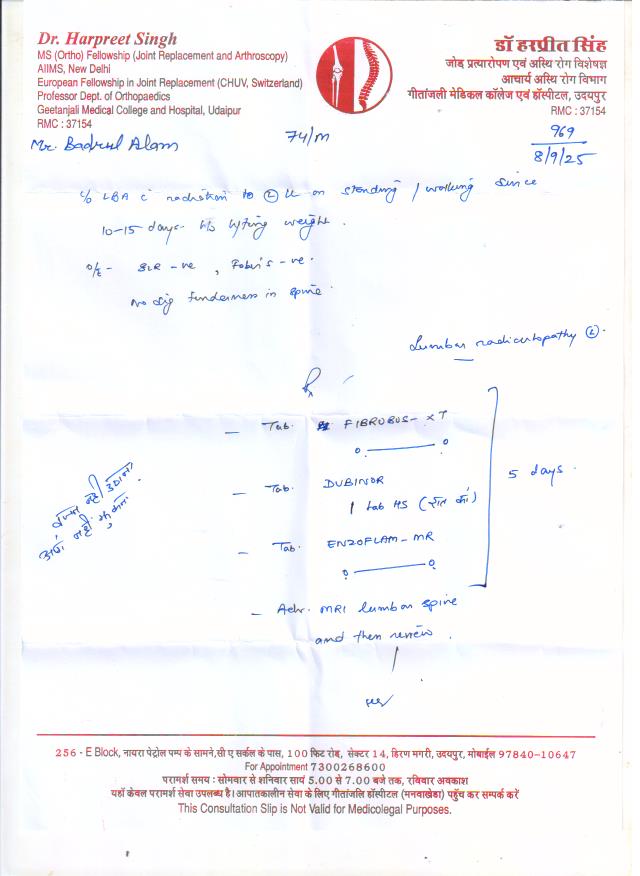 Dr. Harpreet Singh
MS (Ortho) Fellowship (Joint Replacement and Arthroscopy)
AIIMS, New Delhi
European Fellowship in Joint Replacement (CHUV, Switzerland)
Professor Dept. of Orthopaedics
Geetanjali Medical College and Hospital, Udaipur
RMC : 37154
डॉ हरप्रीत सिंह
जोड़ प्रत्यारोपण एवं अस्थि रोग विशेषज्ञ
आचार्य अस्थि रोग विभाग
गीतांजली मेडिकल कॉलेज एवं हॉस्पीटल, उदयपुर
RMC : 37154
Mr. Badrul Alam 74/m
969
8/9/25
c/o LBA c radiation to L LL on standing / walking since
10-15 days- H/o lifting weight.
O/E - SLR -ve, Faber's -ve.
No sig tenderness in spine.
Lumbar radiculopathy L.
Rx
- Tab. FIBROBOS - XT
0 — 0
- Tab. DUBINOR
1 tab HS (रात को)
- Tab. ENZOFLAM - MR
0 — 0
5 days.
वजन नहीं उठाना
आगे नहीं झुकना
- Adv. MRI lumbar spine
and then review.
256 - E Block, नायरा पेट्रोल पम्प के सामने, सी ए सर्कल के पास, 100 फिट रोड़, सेक्टर 14, हिरण मगरी, उदयपुर, मोबाईल 97840-10647
For Appointment 7300268600
परामर्श समय : सोमवार से शनिवार सायं 5.00 से 7.00 बजे तक, रविवार अवकाश
यहाँ केवल परामर्श सेवा उपलब्ध है। आपातकालीन सेवा के लिए गीतांजलि हॉस्पीटल (मनवाखेडा) पहुँच कर सम्पर्क करें
This Consultation Slip is Not Valid for Medicolegal Purposes.